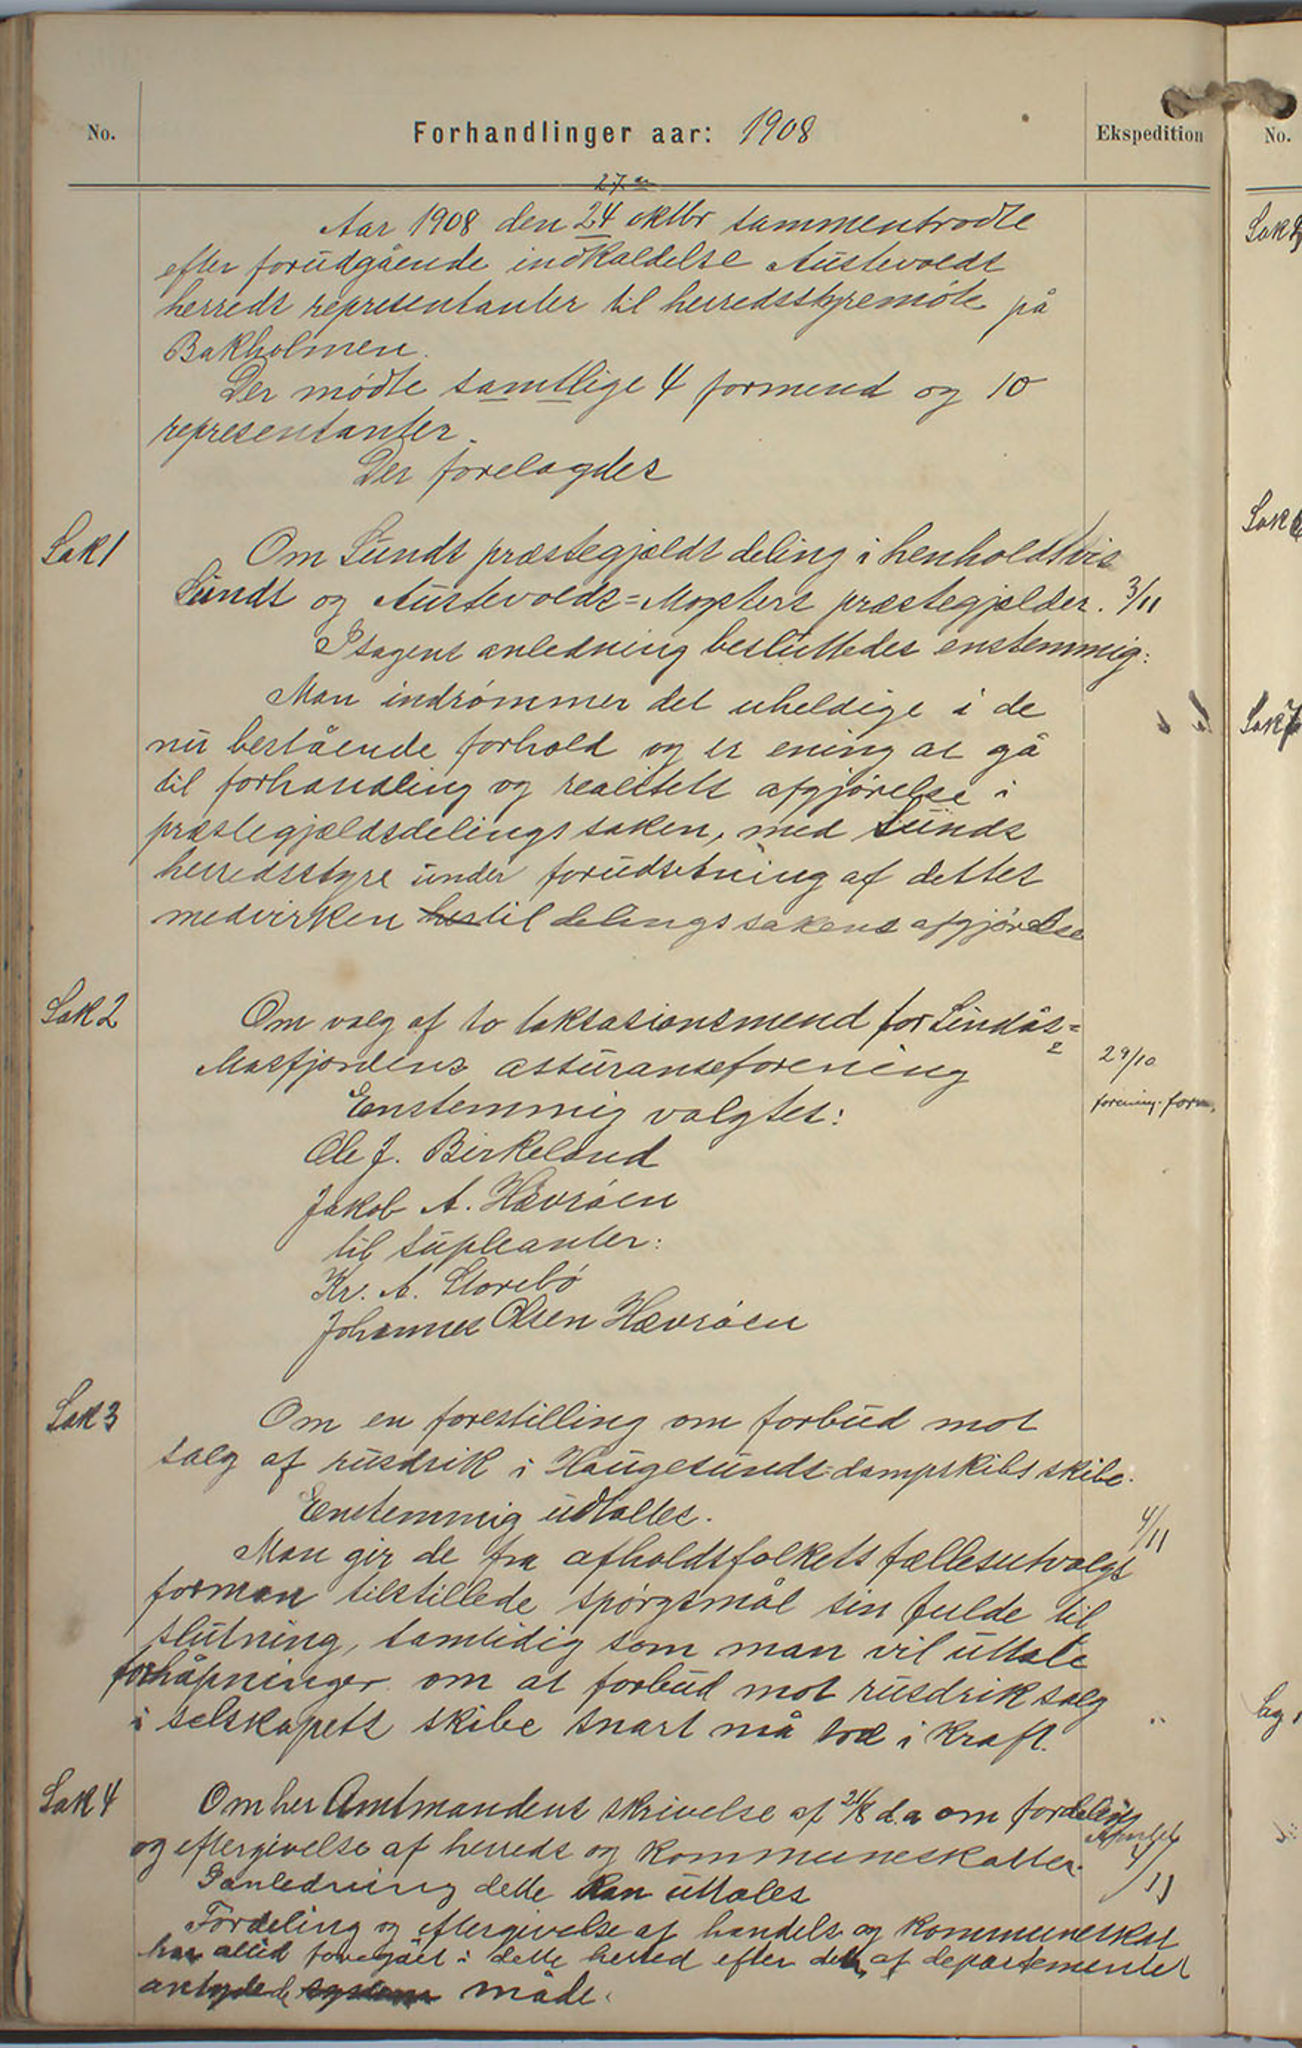 No.
Forhandlinger aar: 1908
Ekspedition
No.
27.
Aar 1908 den 24 oktbr sammentrådte
efter forudgående indkaldelse Austevolds
herreds representanter til herredsstyremöte på
Bakholmen.
Der mödte samtlige 4 formend og 10
representanter.
Der forelagdes
Sak 1
Om Sunds præstegjælds deling i henholdsvis
Sunds og Austevolds=Mösters præstegjælder. 3/11
I sagens anledning besluttedes enstemmig:
Man indrömmer det uheldige i de
nu bestående forhold og er ening at gå
til forhandling og realitets afgjörelse i
præstegjældsdelings saken, med Sunds
herredsstyre under forudsetning af dettes
medvirken til delings sakens afgjörelse
Sak 2
Om valg af to taksasionsmend for Lindås=
Masfjordens assuranseforening
29/10
forening. form.
Enstemmig valgtes:
Ole J. Birkeland
Jakob A. Hævröen
til supleanter:
Kr. A. Storebö
Johannes Olsen Hævröen
Sak 3
Om en forestilling om forbud mot
salg af rusdrik i Haugesunds dampskibs skibe.
Enstemmig udtaltes.
4/11
Man gir de fra afholdsfolkets fællesutvalgs
forman tilstillede spörgsmål sin fulde til
slutning, samtidig som man vil uttale
forhåpninger om at forbud mot rusdrik salg
i selskapets skibe snart må træ i kraft.
Sak 4
Om her Amtmandens skrivelse af 21/8 d.a om fordeling
og eftergivelse af herreds og kommuneskatter.
4/11
I anledning dette kan uttales
Fordeling og eftergivelse af handels og kommuneskat
har altid foregået i dette herred efter den af departementet
antydede måde.